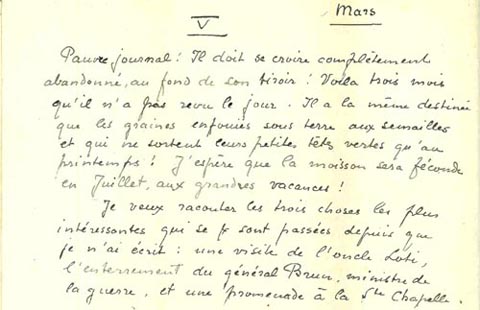 V
Mars
Pauvre journal ! Il doit se croire complètement
abandonné, au fond de son tiroir ! Voilà trois mois
qu'il n'a pas revu le jour. Il a la même destinée
que les graines enfouies sous terre aux semailles
et qui ne sortent leurs petites têtes vertes qu'au
printemps ! J'espère que la moisson sera féconde
en Juillet, aux grandes vacances !
Je veux raconter les trois choses les plus
intéressantes qui se sont passées depuis que
je n'ai écrit : une visite de l'oncle Loti,
l'enterrement du général Brun, ministre de
la guerre, et une promenade à la Ste Chapelle.